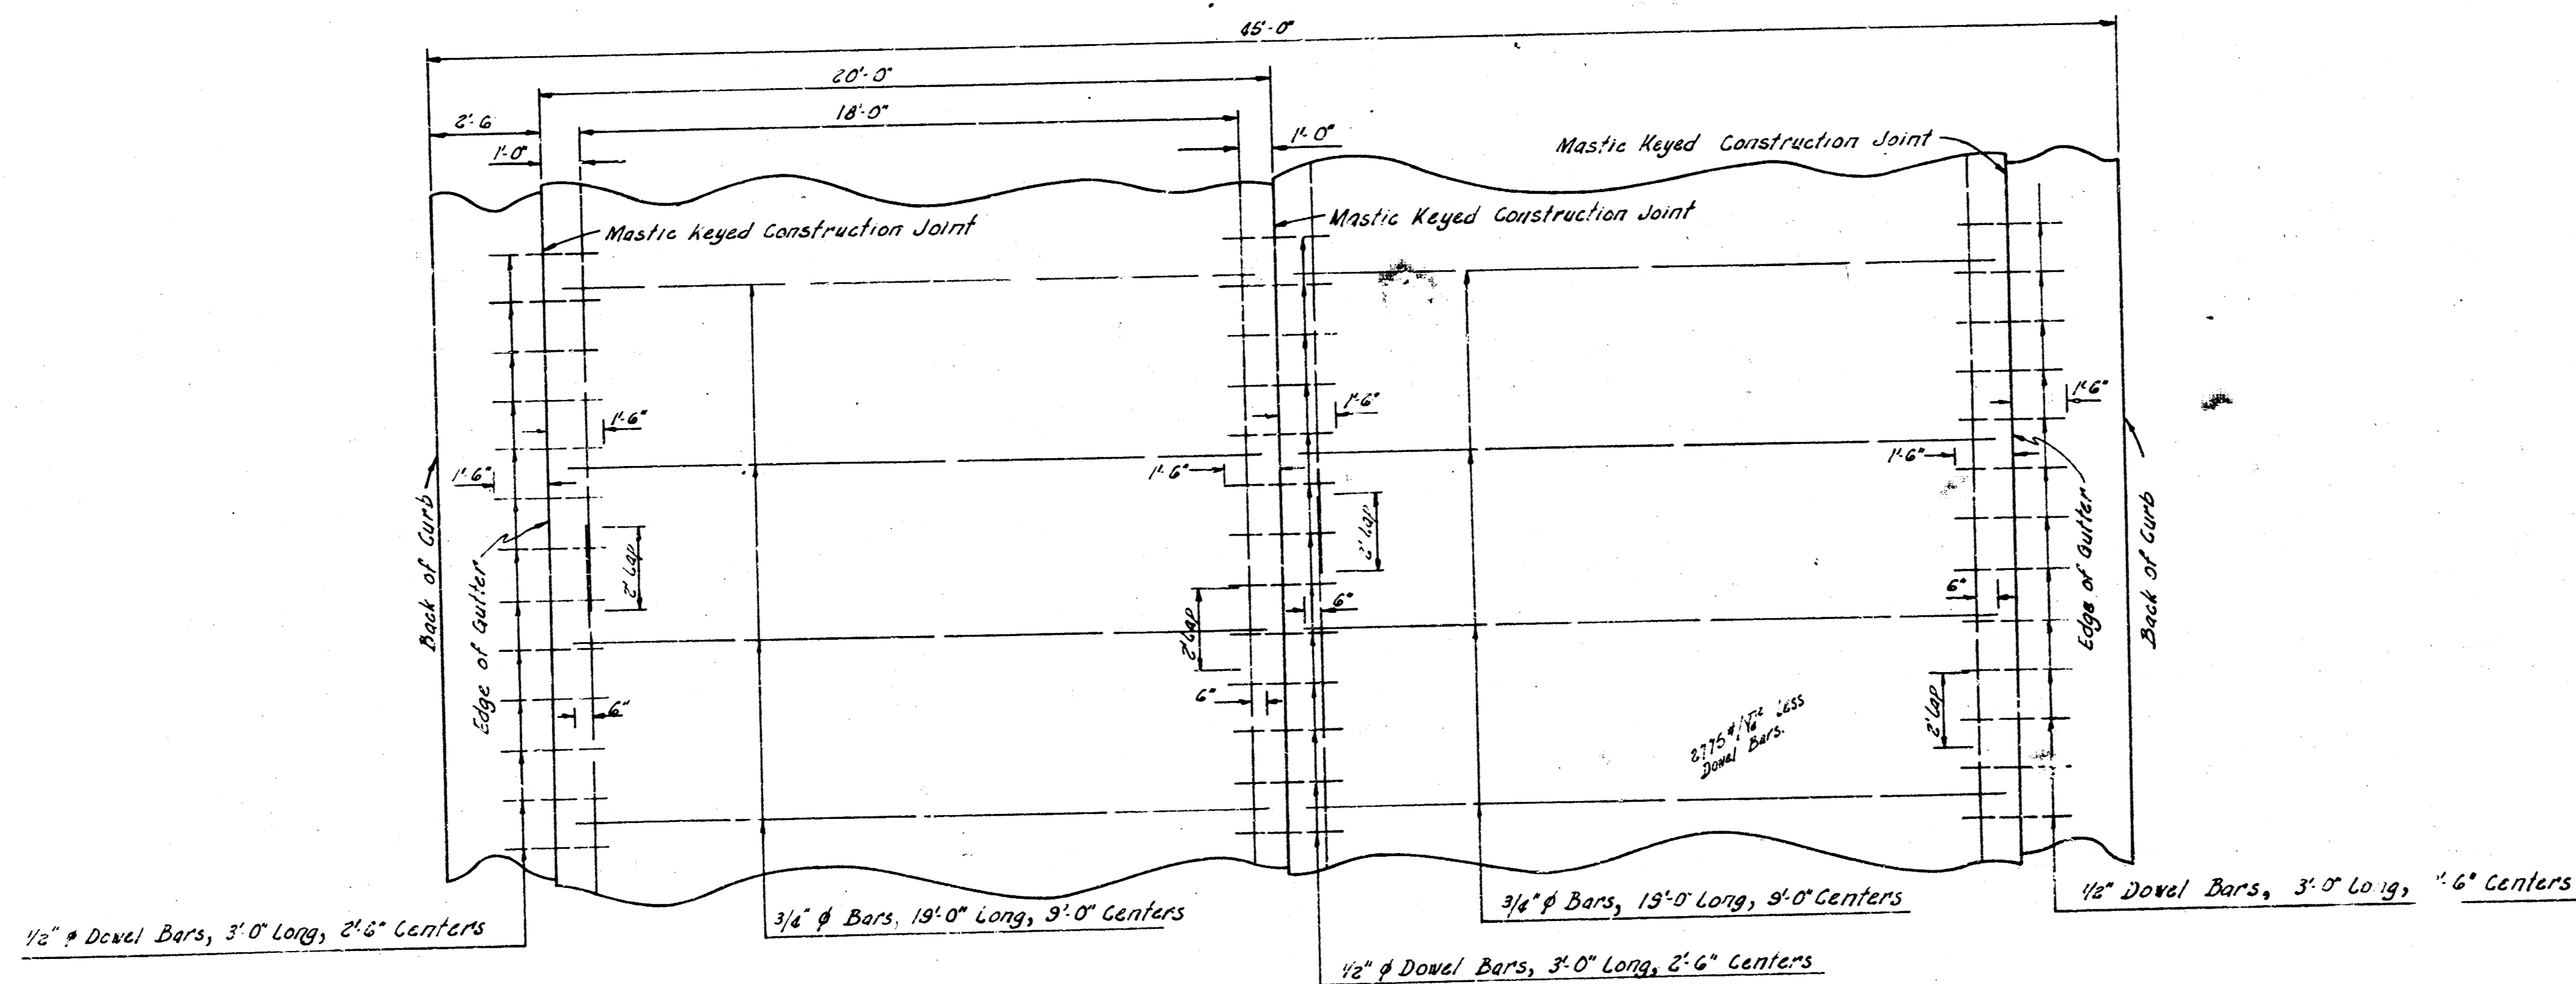 45'-0"
20'-0"
18'-0"
2'-6
1'-0"
1'-0"
Mastic Keyed Construction Joint
Mastic Keyed Construction Joint
Mastic Keyed Construction Joint
1'-6"
1'-6"
1'-6"
1'-6"
1'-6"
1'-6"
Back of Curb
Edge of Gutter
2' Lap
2' Lap
2' Lap
6"
6"
6"
6"
2' Lap
Edge of Gutter
Back of Curb
2775 #/ Less
Dowel Bars.
1/2" φ Dowel Bars, 3'-0" Long, 2'-6" Centers
3/4" φ Bars, 19'-0" Long, 9'-0" Centers
3/4" φ Bars, 19'-0" Long, 9'-0" Centers
1/2" Dowel Bars, 3'-0" Long, -6" Centers
1/2" φ Dowel Bars, 3'-0" Long, 2'-6" Centers